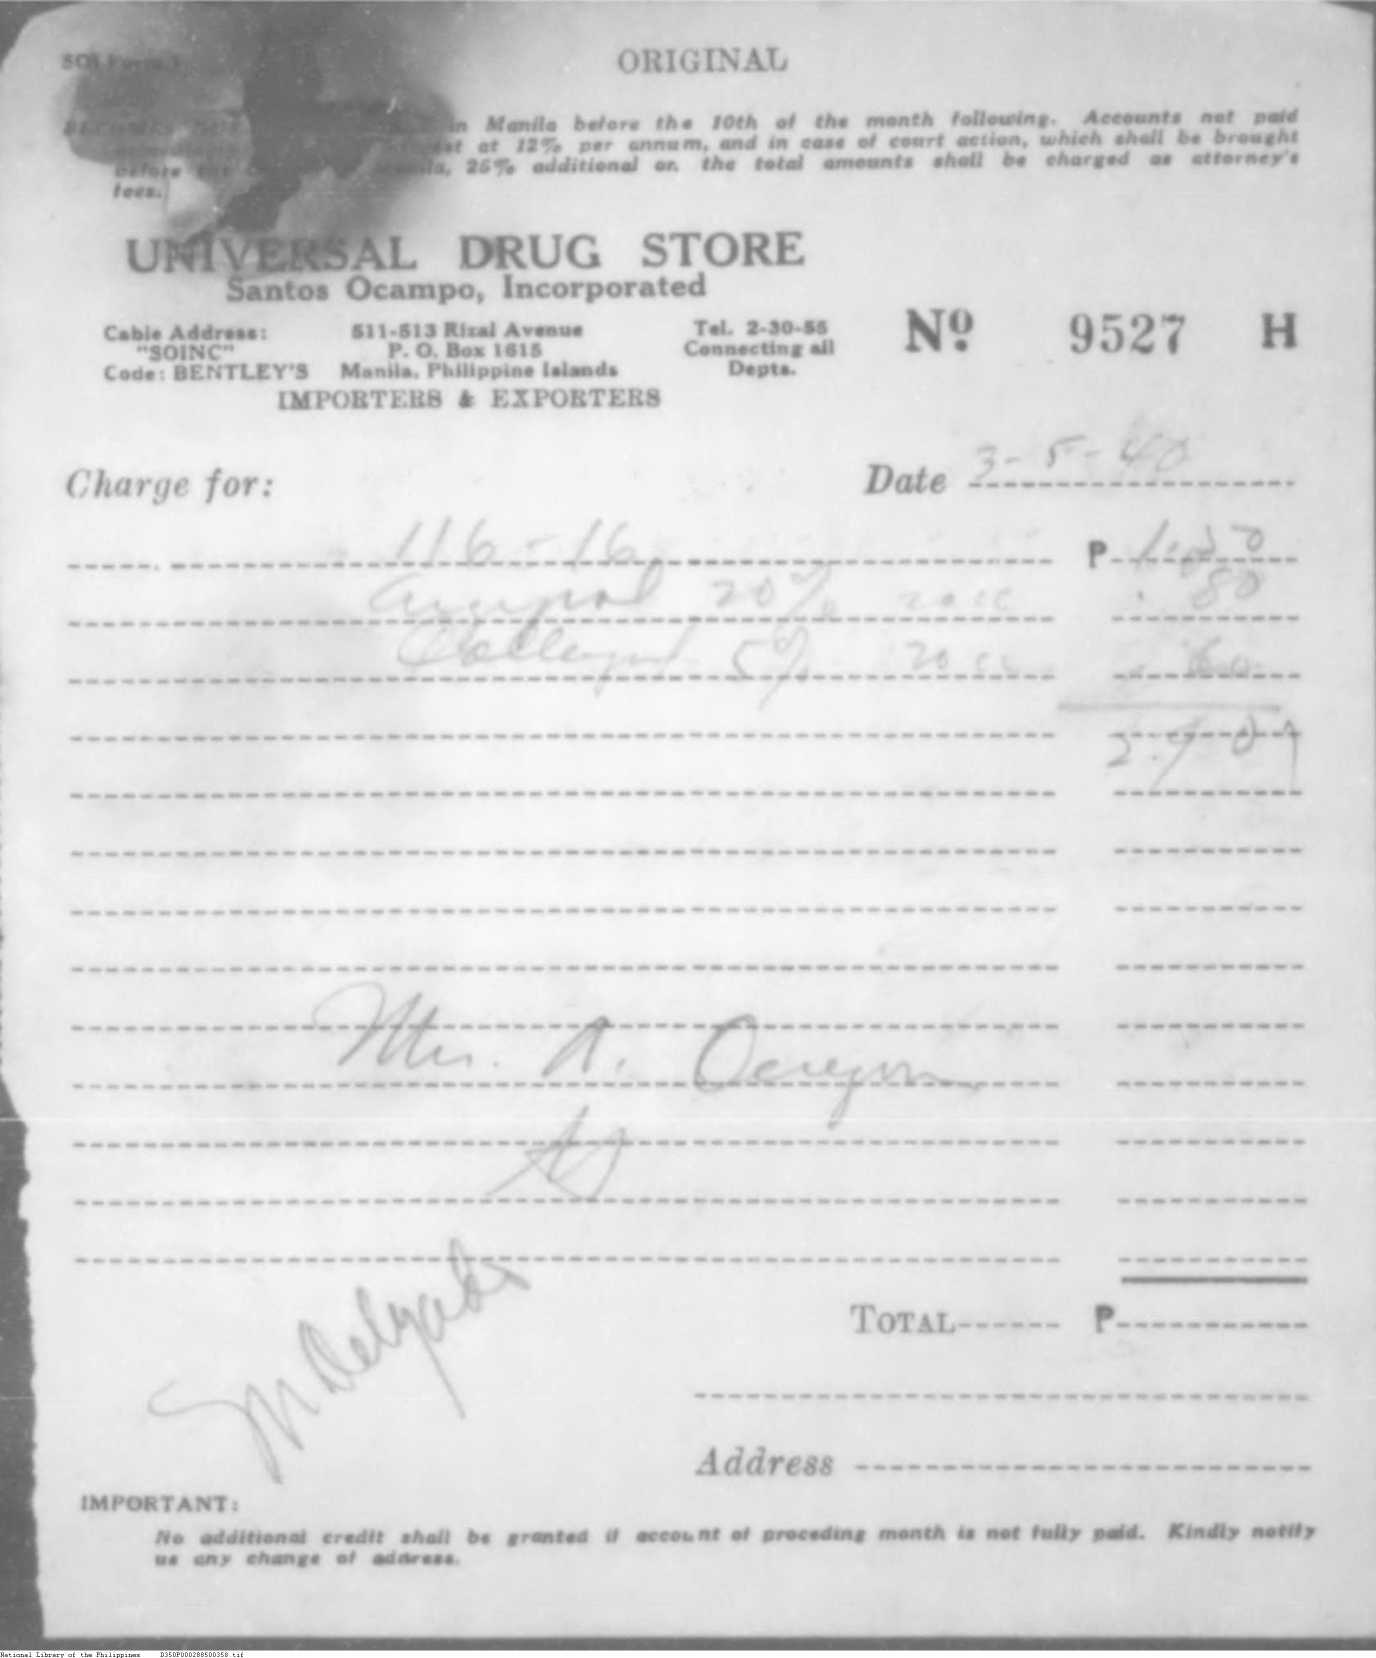 SOI Form 1
ORIGINAL
in Manila before the 10th of the month following. Accounts not paid
at 12% per annum, and in case of court action, which shall be brought
before the Manila, 25% additional on the total amounts shall be charged as attorney's
fees.
UNIVERSAL DRUG STORE
Santos Ocampo, Incorporated
Cable Address: 511-513 Rizal Avenue Tel. 2-30-55
"SOINC" P. O. Box 1615 Connecting all
Code: BENTLEY'S Manila, Philippine Islands Depts.
IMPORTERS & EXPORTERS
Nº 9527 H
Charge for: Date 3-5-40
116-16 P 1.50
Argyrol 20% 20 cc .80
5% 20 cc .60
2.90
Mrs. A.
M Delgado
TOTAL P
Address
IMPORTANT:
No additional credit shall be granted if account of proceding month is not fully paid. Kindly notify
us any change of address.
National Library of the Philippines D350P000288500358.tif